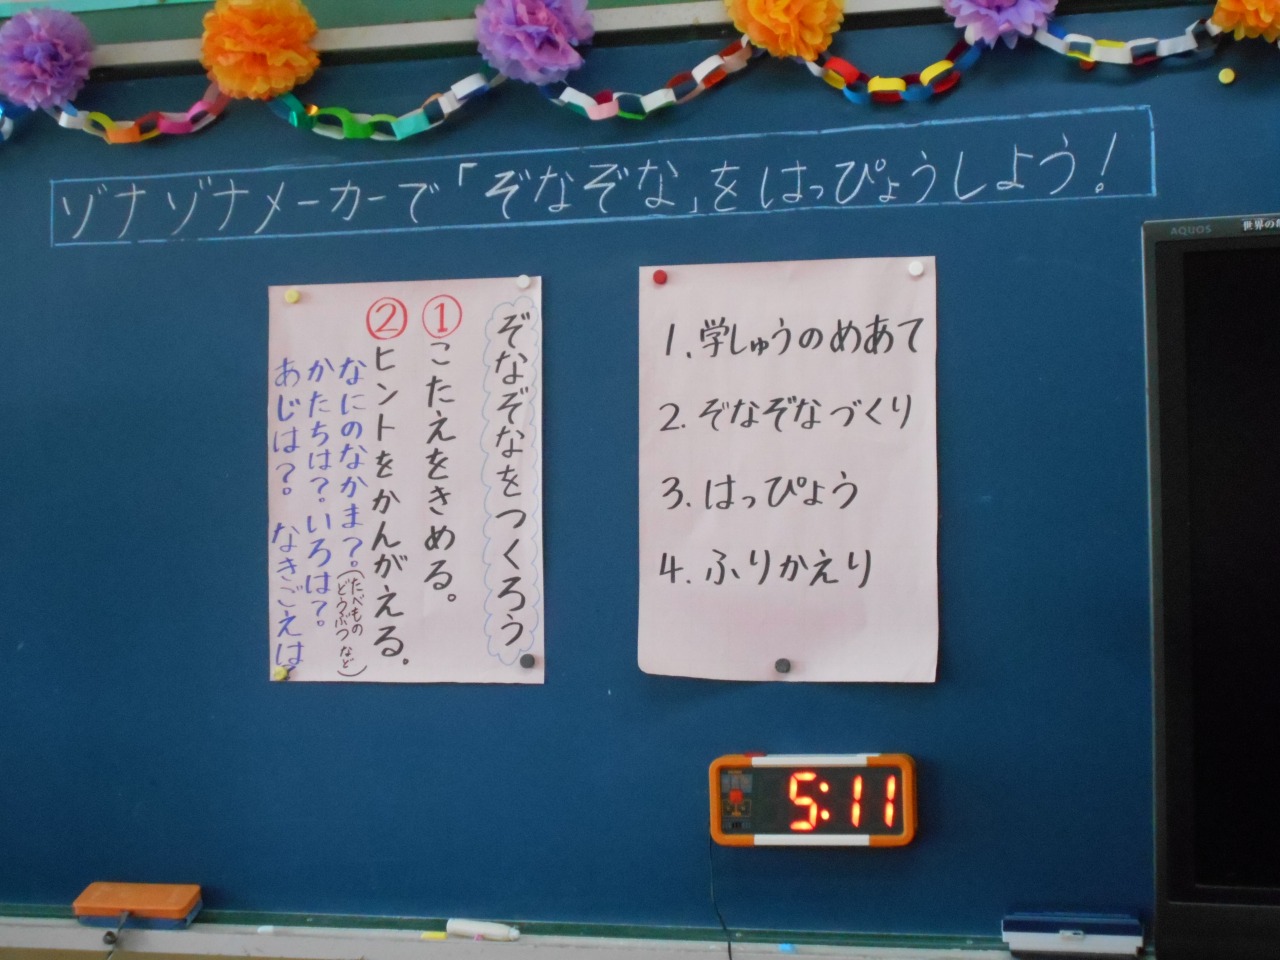 ゾナゾナメーカーで「ぞなぞな」をはっぴょうしよう!
ぞなぞなをつくろう
①こたえをきめる。
②ヒントをかんがえる。
なにのなかま?。(たべもの どうぶつ など)
かたちは?。いろは?。
あじは?。なきごえは
1.学しゅうのめあて
2.ぞなぞなづくり
3.はっぴょう
4.ふりかえり
AQUOS
世界の
5:11